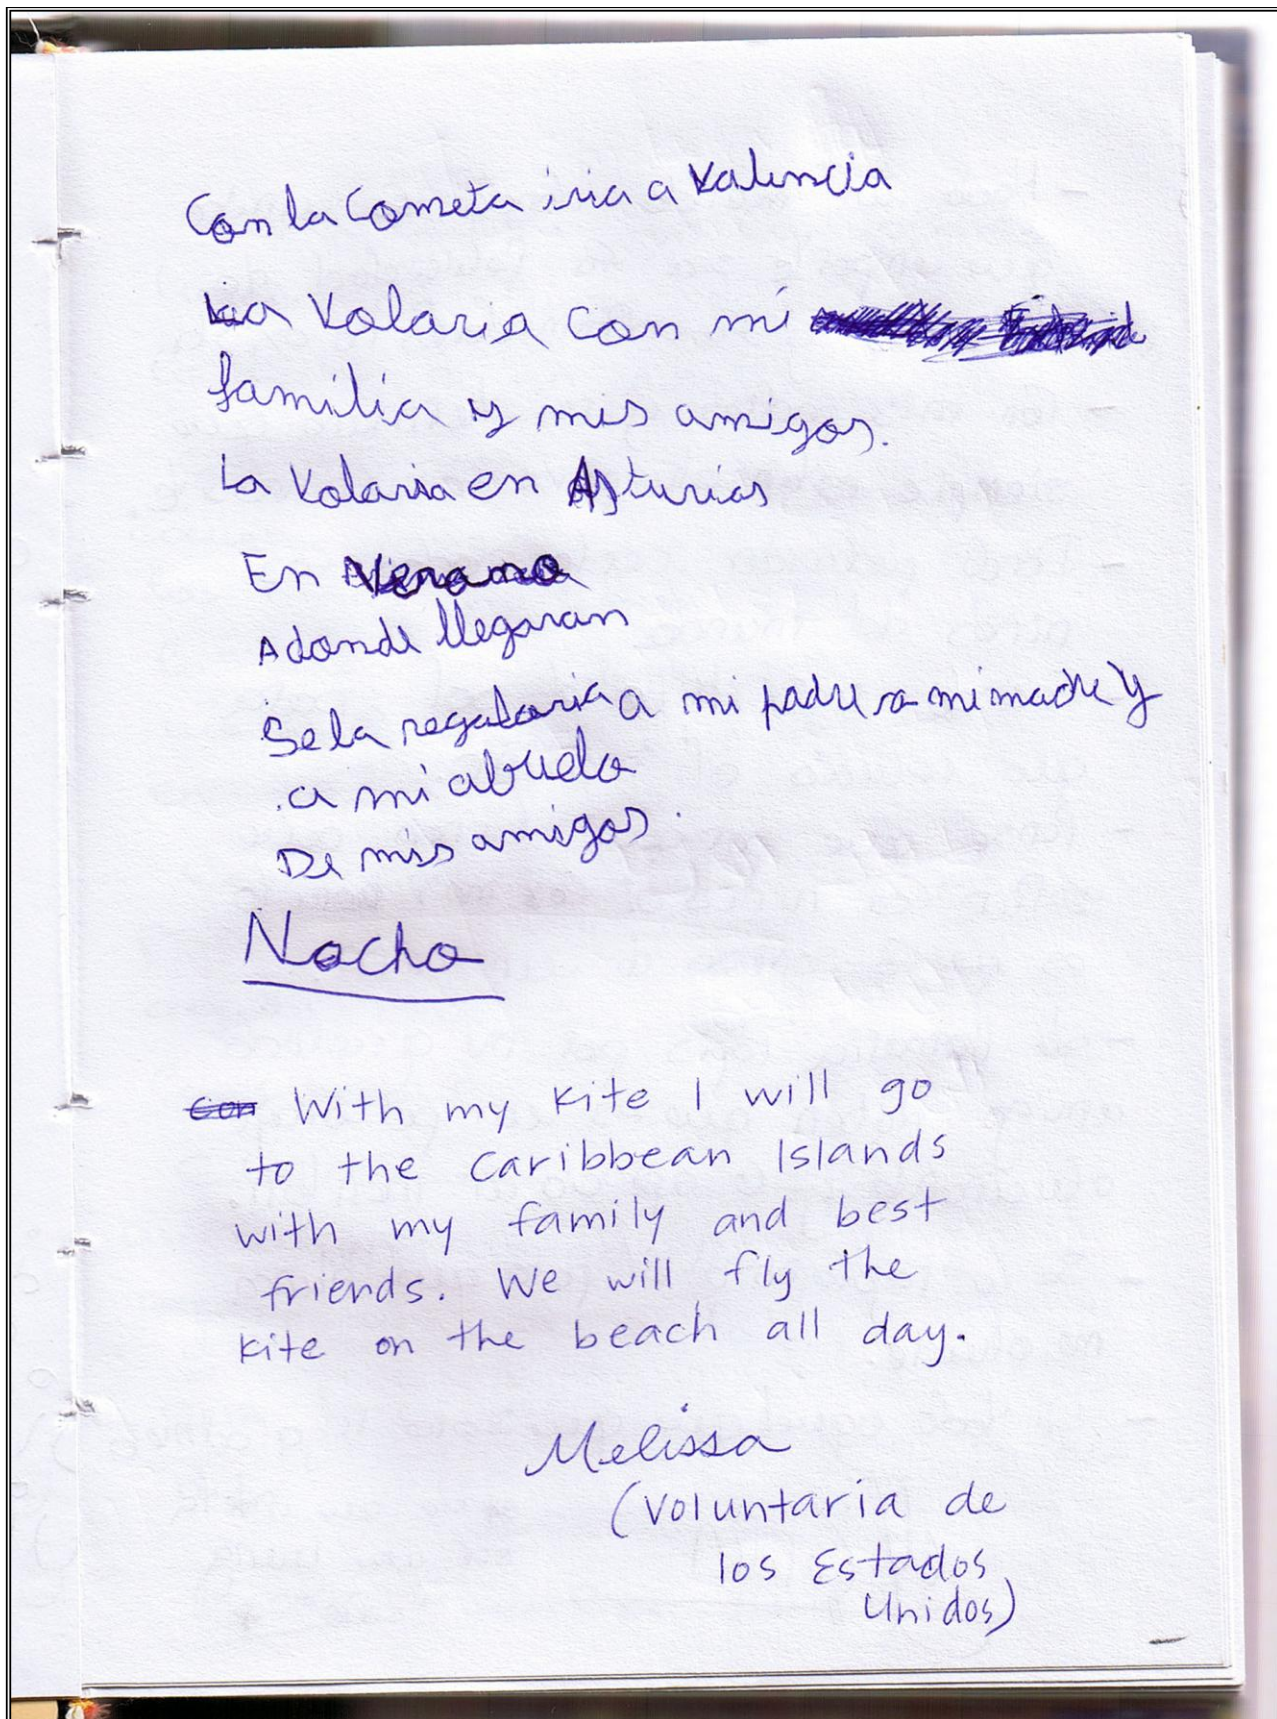 Con la Cometa iria a Valencia
La Volaria con mi
familia y mis amigos.
La Volaria en Asturias
En Verano
A donde llegaran
Se la regalaria a mi padre a mi madre y
a mi abuela
De mis amigos.
Nacho
Con With my kite I will go
to the Caribbean Islands
with my family and best
friends. We will fly the
kite on the beach all day.
Melissa
(Voluntaria de
los Estados
Unidos)